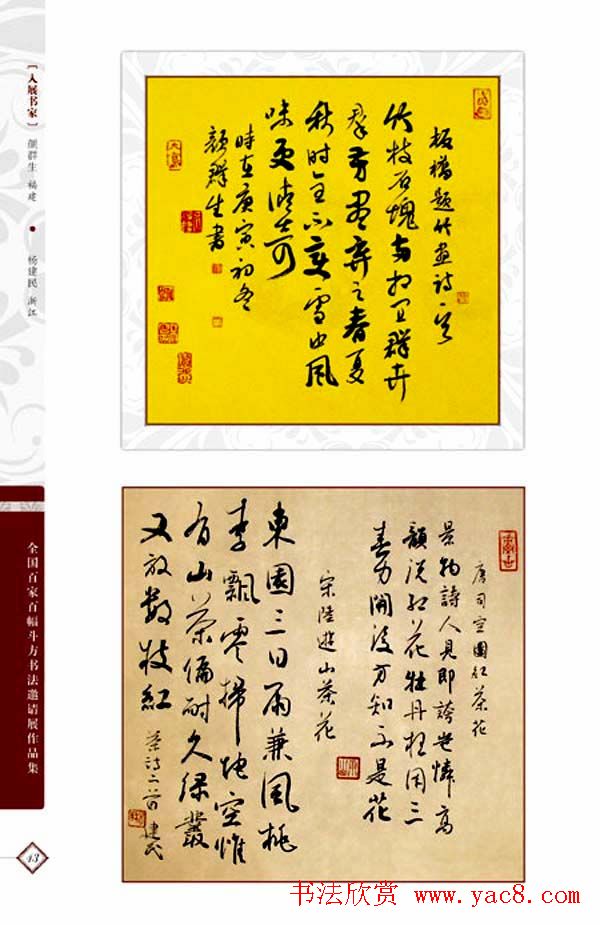 [入展书家]
颜群生 福建
杨建民 浙江
全国百家百幅斗方书法邀请展作品集
43
板橋題竹画诗一首
竹枝石塊两相宜群卉
群芳尽弃之春夏
秋时全不变雪中风
味更清奇
時在庚寅初冬
颜群生書
唐司空圖红茶花
景物詩人見即誇岂憐高
韻说红花牡丹枉用三
春力開後方知不是花
宋陸遊山茶花
東園三日雨兼風桃
李飄零掃地空惟
有山茶偏耐久绿叢
又放数枝紅
茶诗二首 建民
书法欣赏 www.yac8.com